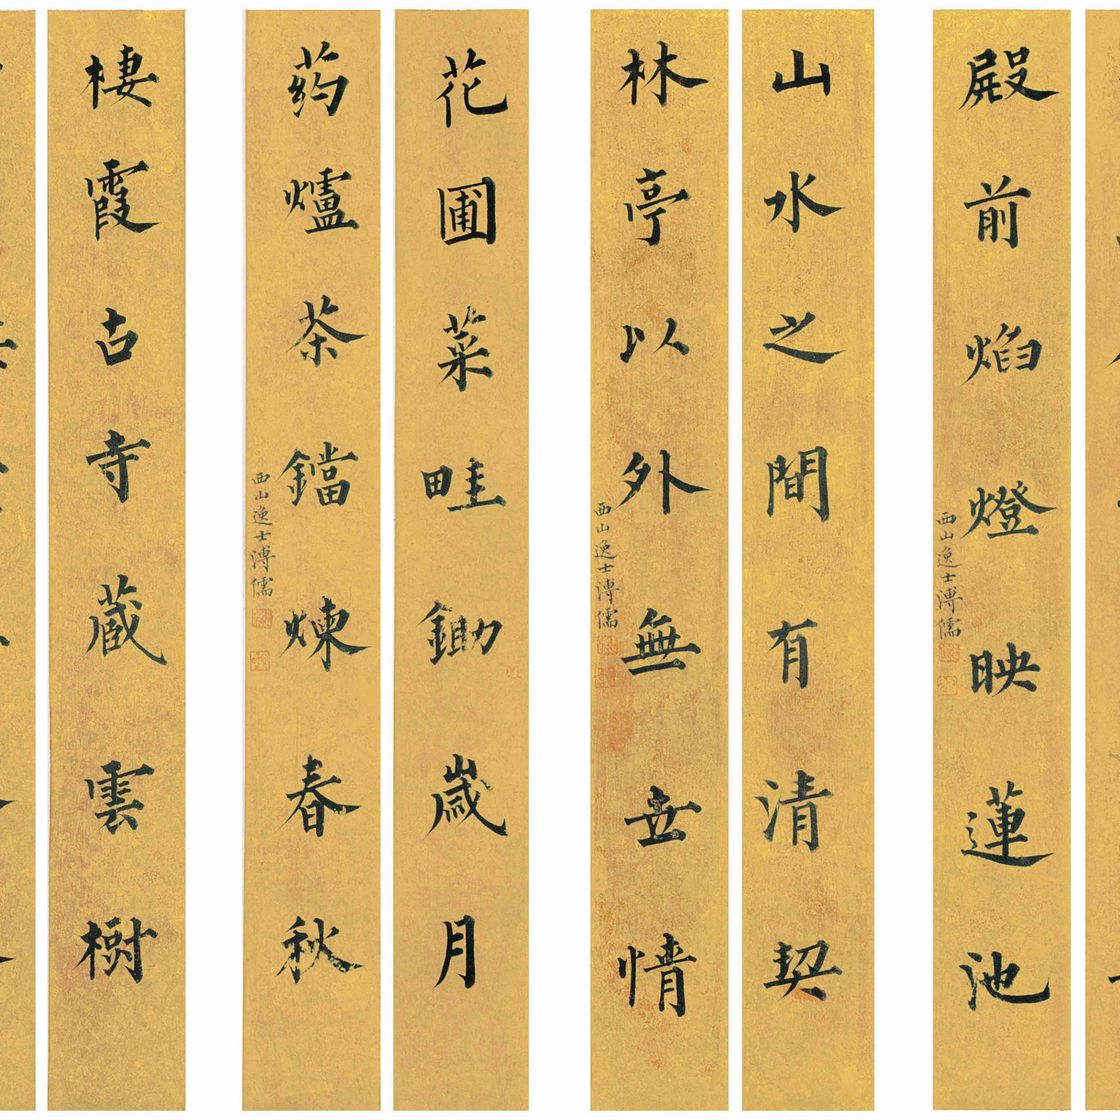 殿前焰燈映蓮池
西山逸士溥儒
山水之間有清契
林亭以外無世情
西山逸士溥儒
花圃菜畦鋤歲月
药爐茶鐺煉春秋
西山逸士溥儒
棲霞古寺蔵雲樹